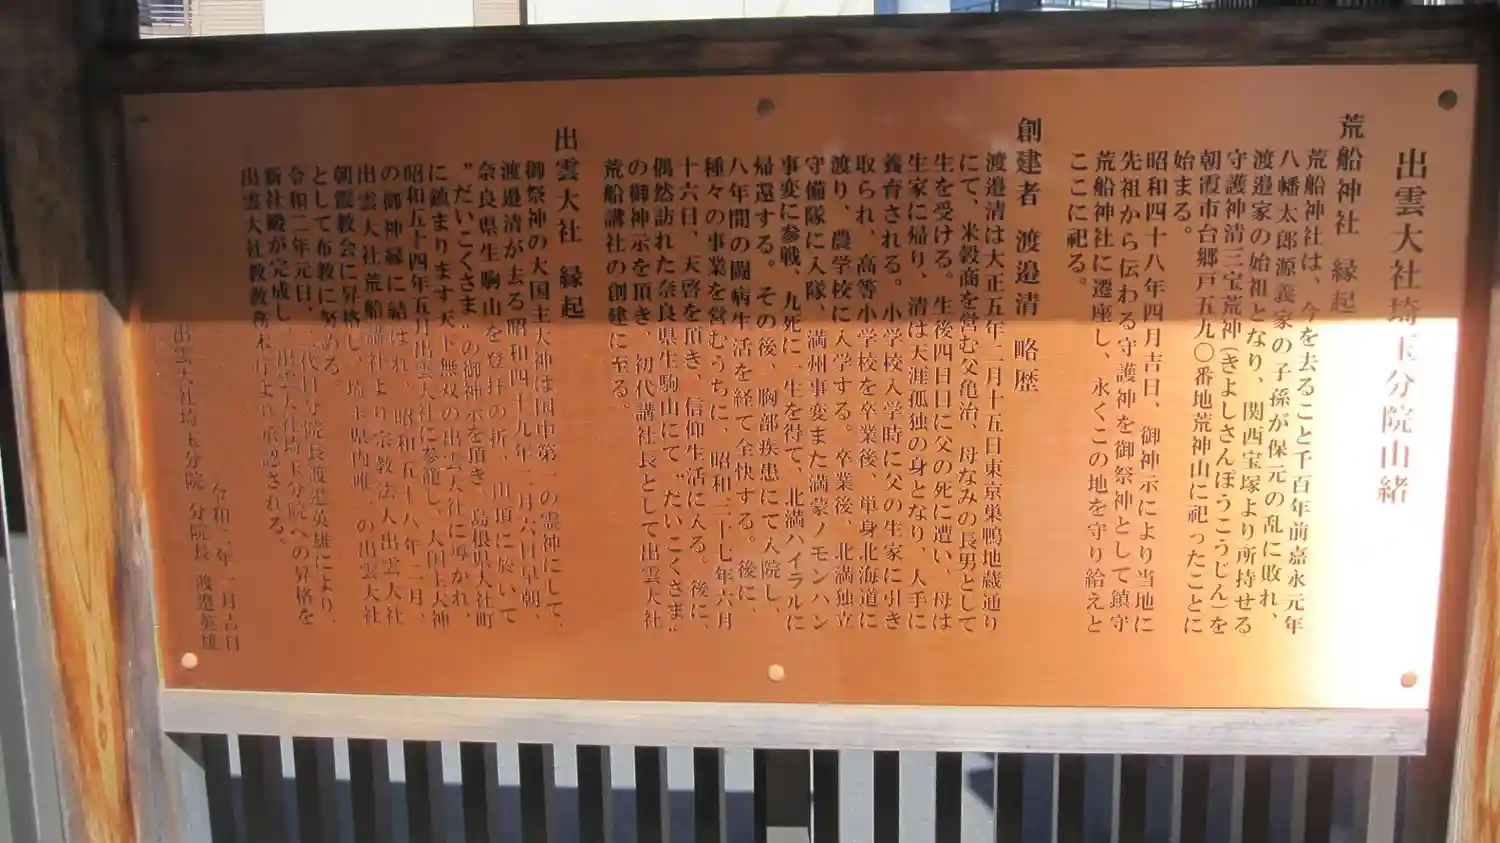 出雲大社埼玉分院由緒
荒船神社 縁起
荒船神社は、今を去ること千百年前嘉永元年
八幡太郎源義家の子孫が保元の乱に敗れ、
渡邉家の始祖となり、関西宝塚より所持せる
守護神清三宝荒神（きよしさんぽうこうじん）を
朝霞市台郷戸五九〇番地荒神山に祀ったことに
始まる。
昭和四十八年四月吉日、御神示により当地に
先祖から伝わる守護神を御祭神として鎮守
荒船神社に遷座し、永くこの地を守り給えと
ここに祀る。
創建者 渡邉清 略歴
渡邉清は大正五年二月十五日東京巣鴨地蔵通り
にて、米穀商を営む父亀治、母なみの長男として
生を受ける。生後四日目に父の死に遭い、母は
生家に帰り、清は天涯孤独の身となり、人手に
養育される。小学校入学時に父の生家に引き
取られ、高等小学校を卒業後、単身北海道に
渡り、農学校に入学する。卒業後、北満独立
守備隊に入隊、満州事変また満蒙ノモンハン
事変に参戦、九死に一生を得て、北満ハイラルに
帰還する。その後、胸部疾患にて入院し、
八年間の闘病生活を経て全快する。後に、
種々の事業を営むうちに、昭和三十七年六月
十六日、天啓を頂き、信仰生活に入る。後に、
偶然訪れた奈良県生駒山にて〝だいこくさま〟
の御神示を頂き、初代講社長として出雲大社
荒船講社の創建に至る。
出雲大社 縁起
御祭神の大国主大神は国中第一の霊神にして、
渡邉清が去る昭和四十九年二月六日早朝、
奈良県生駒山を登拝の折、山頂に於いて
〝だいこくさま〟の御神示を頂き、島根県大社町
に鎮まります天下無双の出雲大社に導かれ、
昭和五十四年五月出雲大社に参籠し、大国主大神
の御神縁に結ばれ、昭和五十八年二月、
出雲大社荒船講社より宗教法人出雲大社
朝霞教会に昇格し、埼玉県内唯一の出雲大社
として布教に努める。
令和二年元日、二代目分院長渡邉英雄により、
新社殿が完成し、出雲大社埼玉分院への昇格を
出雲大社教教務本庁より承認される。
令和二年一月吉日
出雲大社埼玉分院 分院長 渡邉英雄